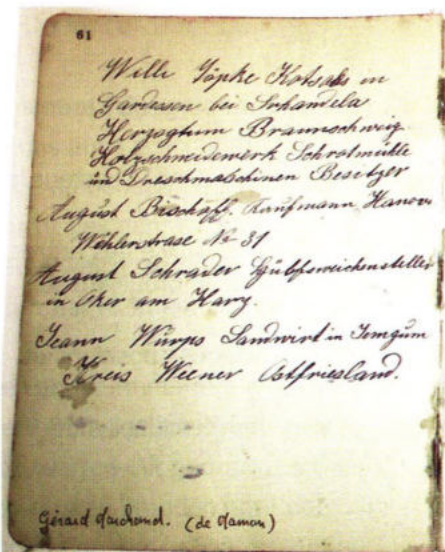 61
Willi Töpke Kotsass in
Gardessen bei Schandela
Herzogtum Braunschweig
Holzschneidewerk Schrotmühle
und Dreschmaschinen Besetzer
August Bischoff. Kaufmann Hanov.
Wöhlerstrase No 31
August Schrader Hülfsweichensteller
in Oker am Harz.
Jeann Wurps Landwirt in Jemgum
Kreis Weener Ostfriesland.
Gérard Marchand. (de Maman)